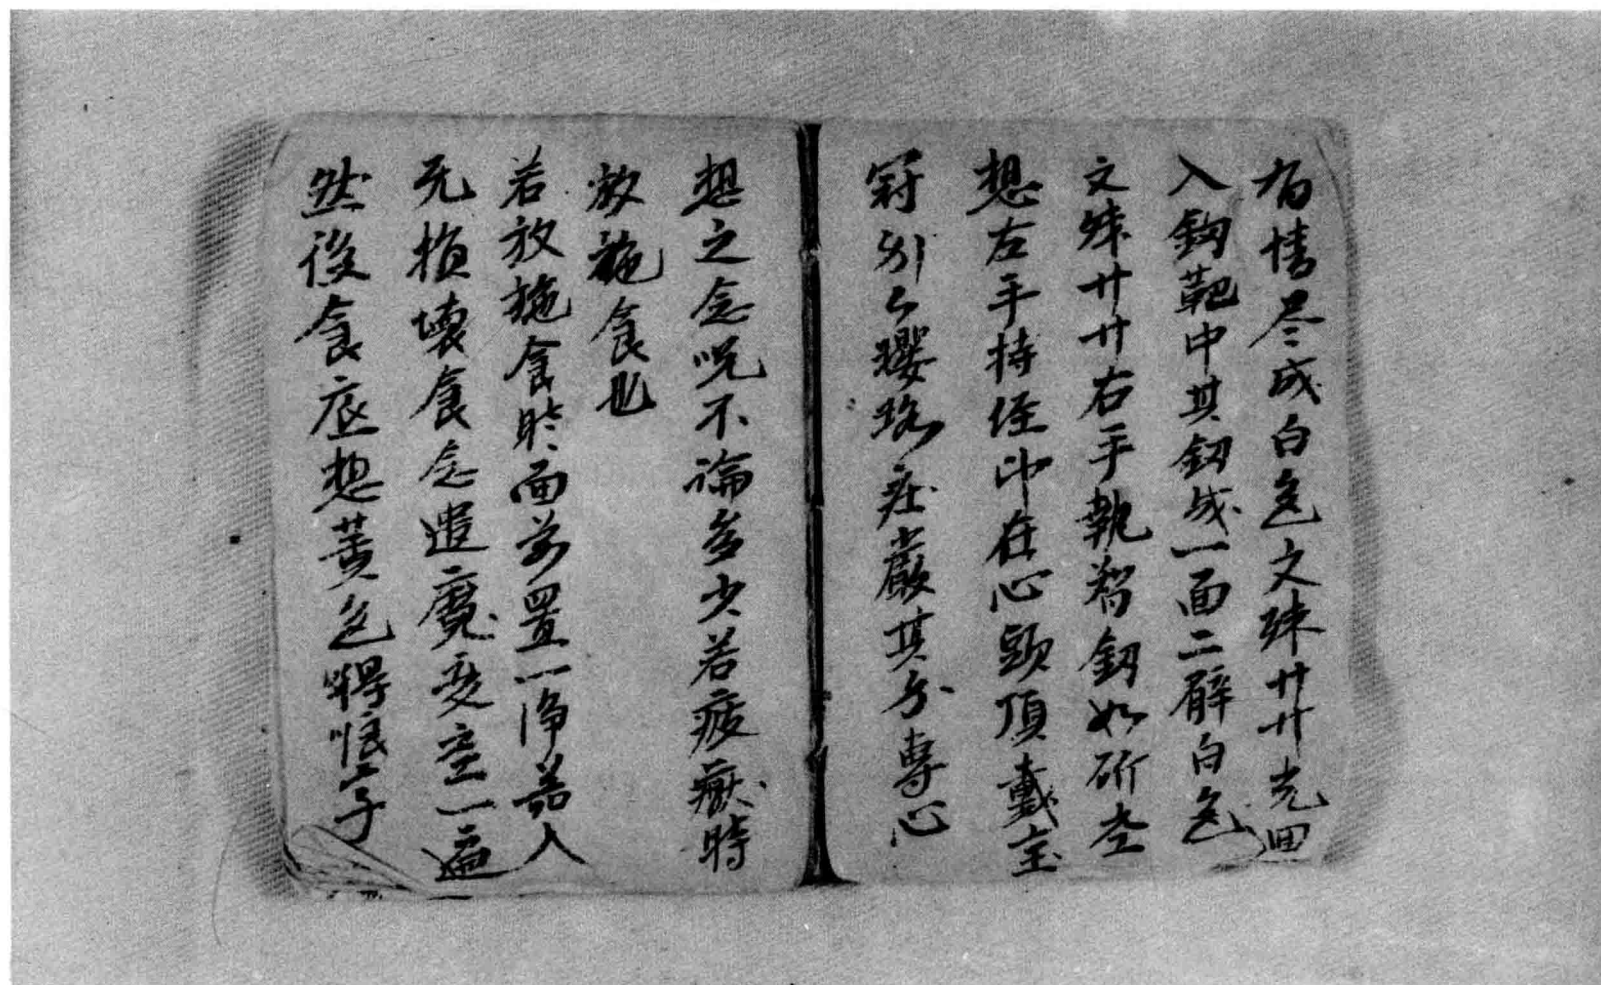 有情尽成白色文殊廾廾光迴
入釰靶中其釰成一面二臂白色
文殊廾廾右手執智釰如斫
想左手持经印在心頭頂戴宝
冠 瓔珞庄嚴其身專心
想之念呪不論多少若疲猒時
放施食也
若放施食時面前置一净器入
无損壞食念遣魔变空一遍
然後食底想黄色 字